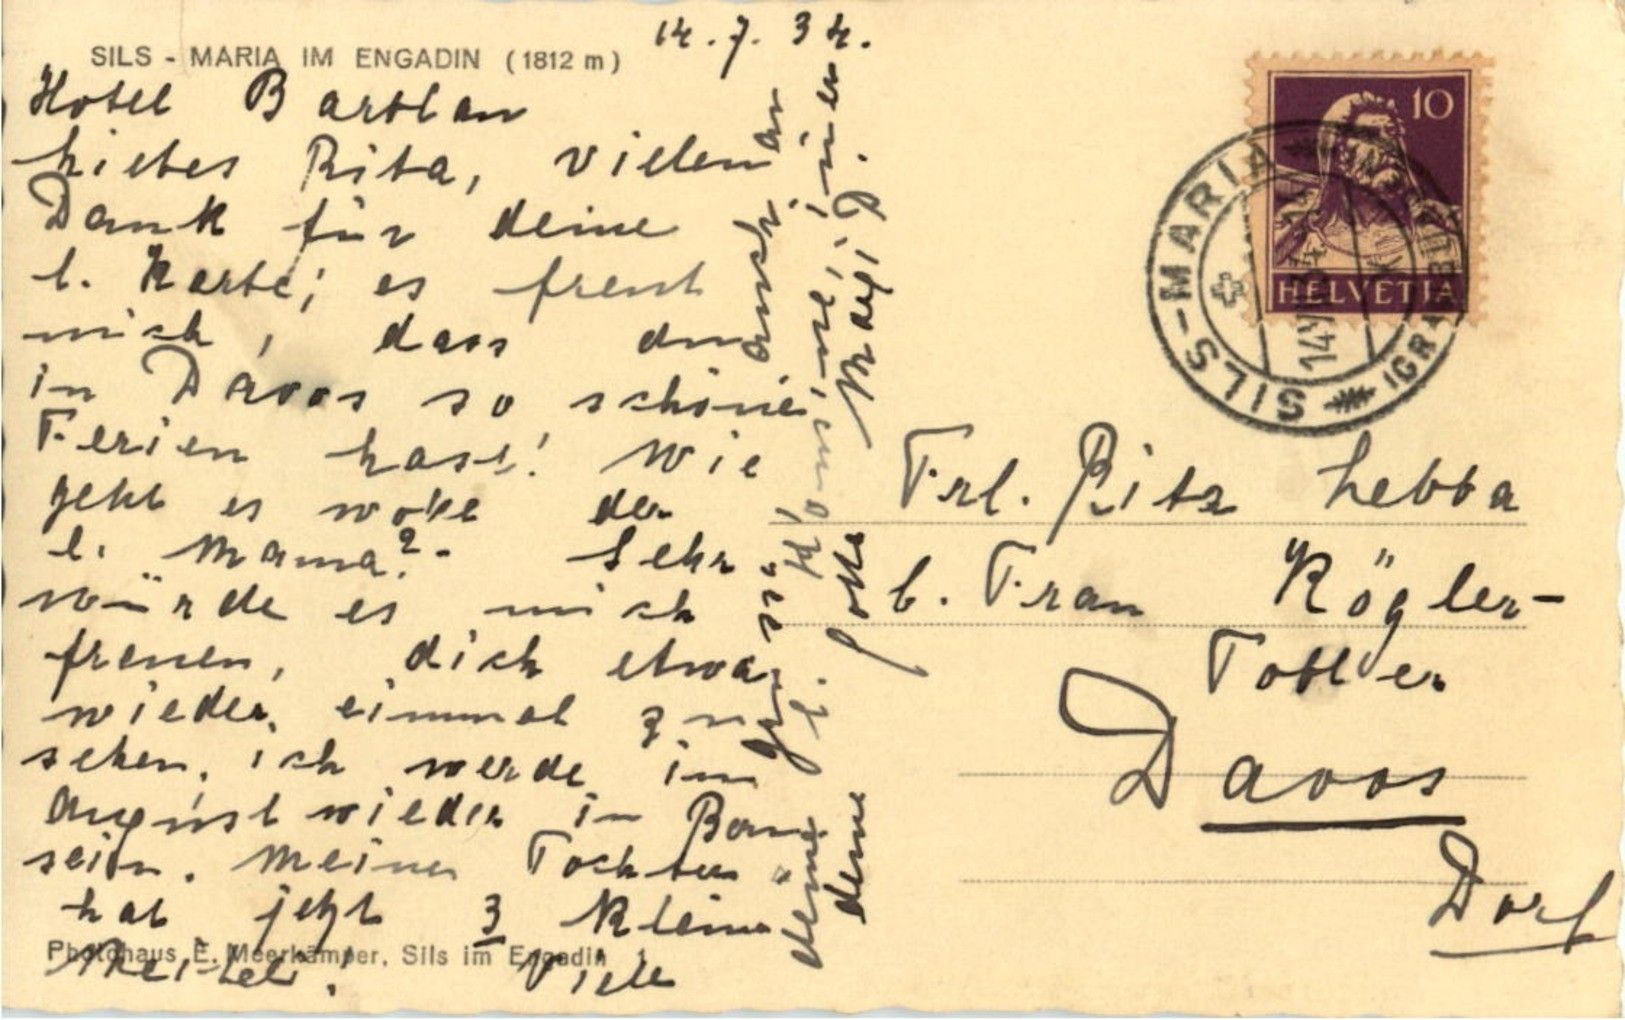 SILS - MARIA IM ENGADIN (1812 m)
14. 7. 34.
Hotel Barblan
Liebes Rita, vielen
Dank für deine
l. Karte; es freut
mich, dass du
in Davos so schöne
Ferien hast! Wie
geht es wohl der
l. Mama? - Sehr
würde es mich
freuen, dich etwa
wieder einmal zu
sehen, ich werde im
August wieder in Bern
sein. Meine Tochter
hat jetzt 3 kleine
Viele
Grüsse auch an
deine l.
deine
Photohaus E. Meerkämper, Sils im Engadin 1
10
HELVETIA
SILS-MARIA
14.VII.34
Frl. Rita Lebba
b. Frau Kögler-
Tobler
Davos
Dorf